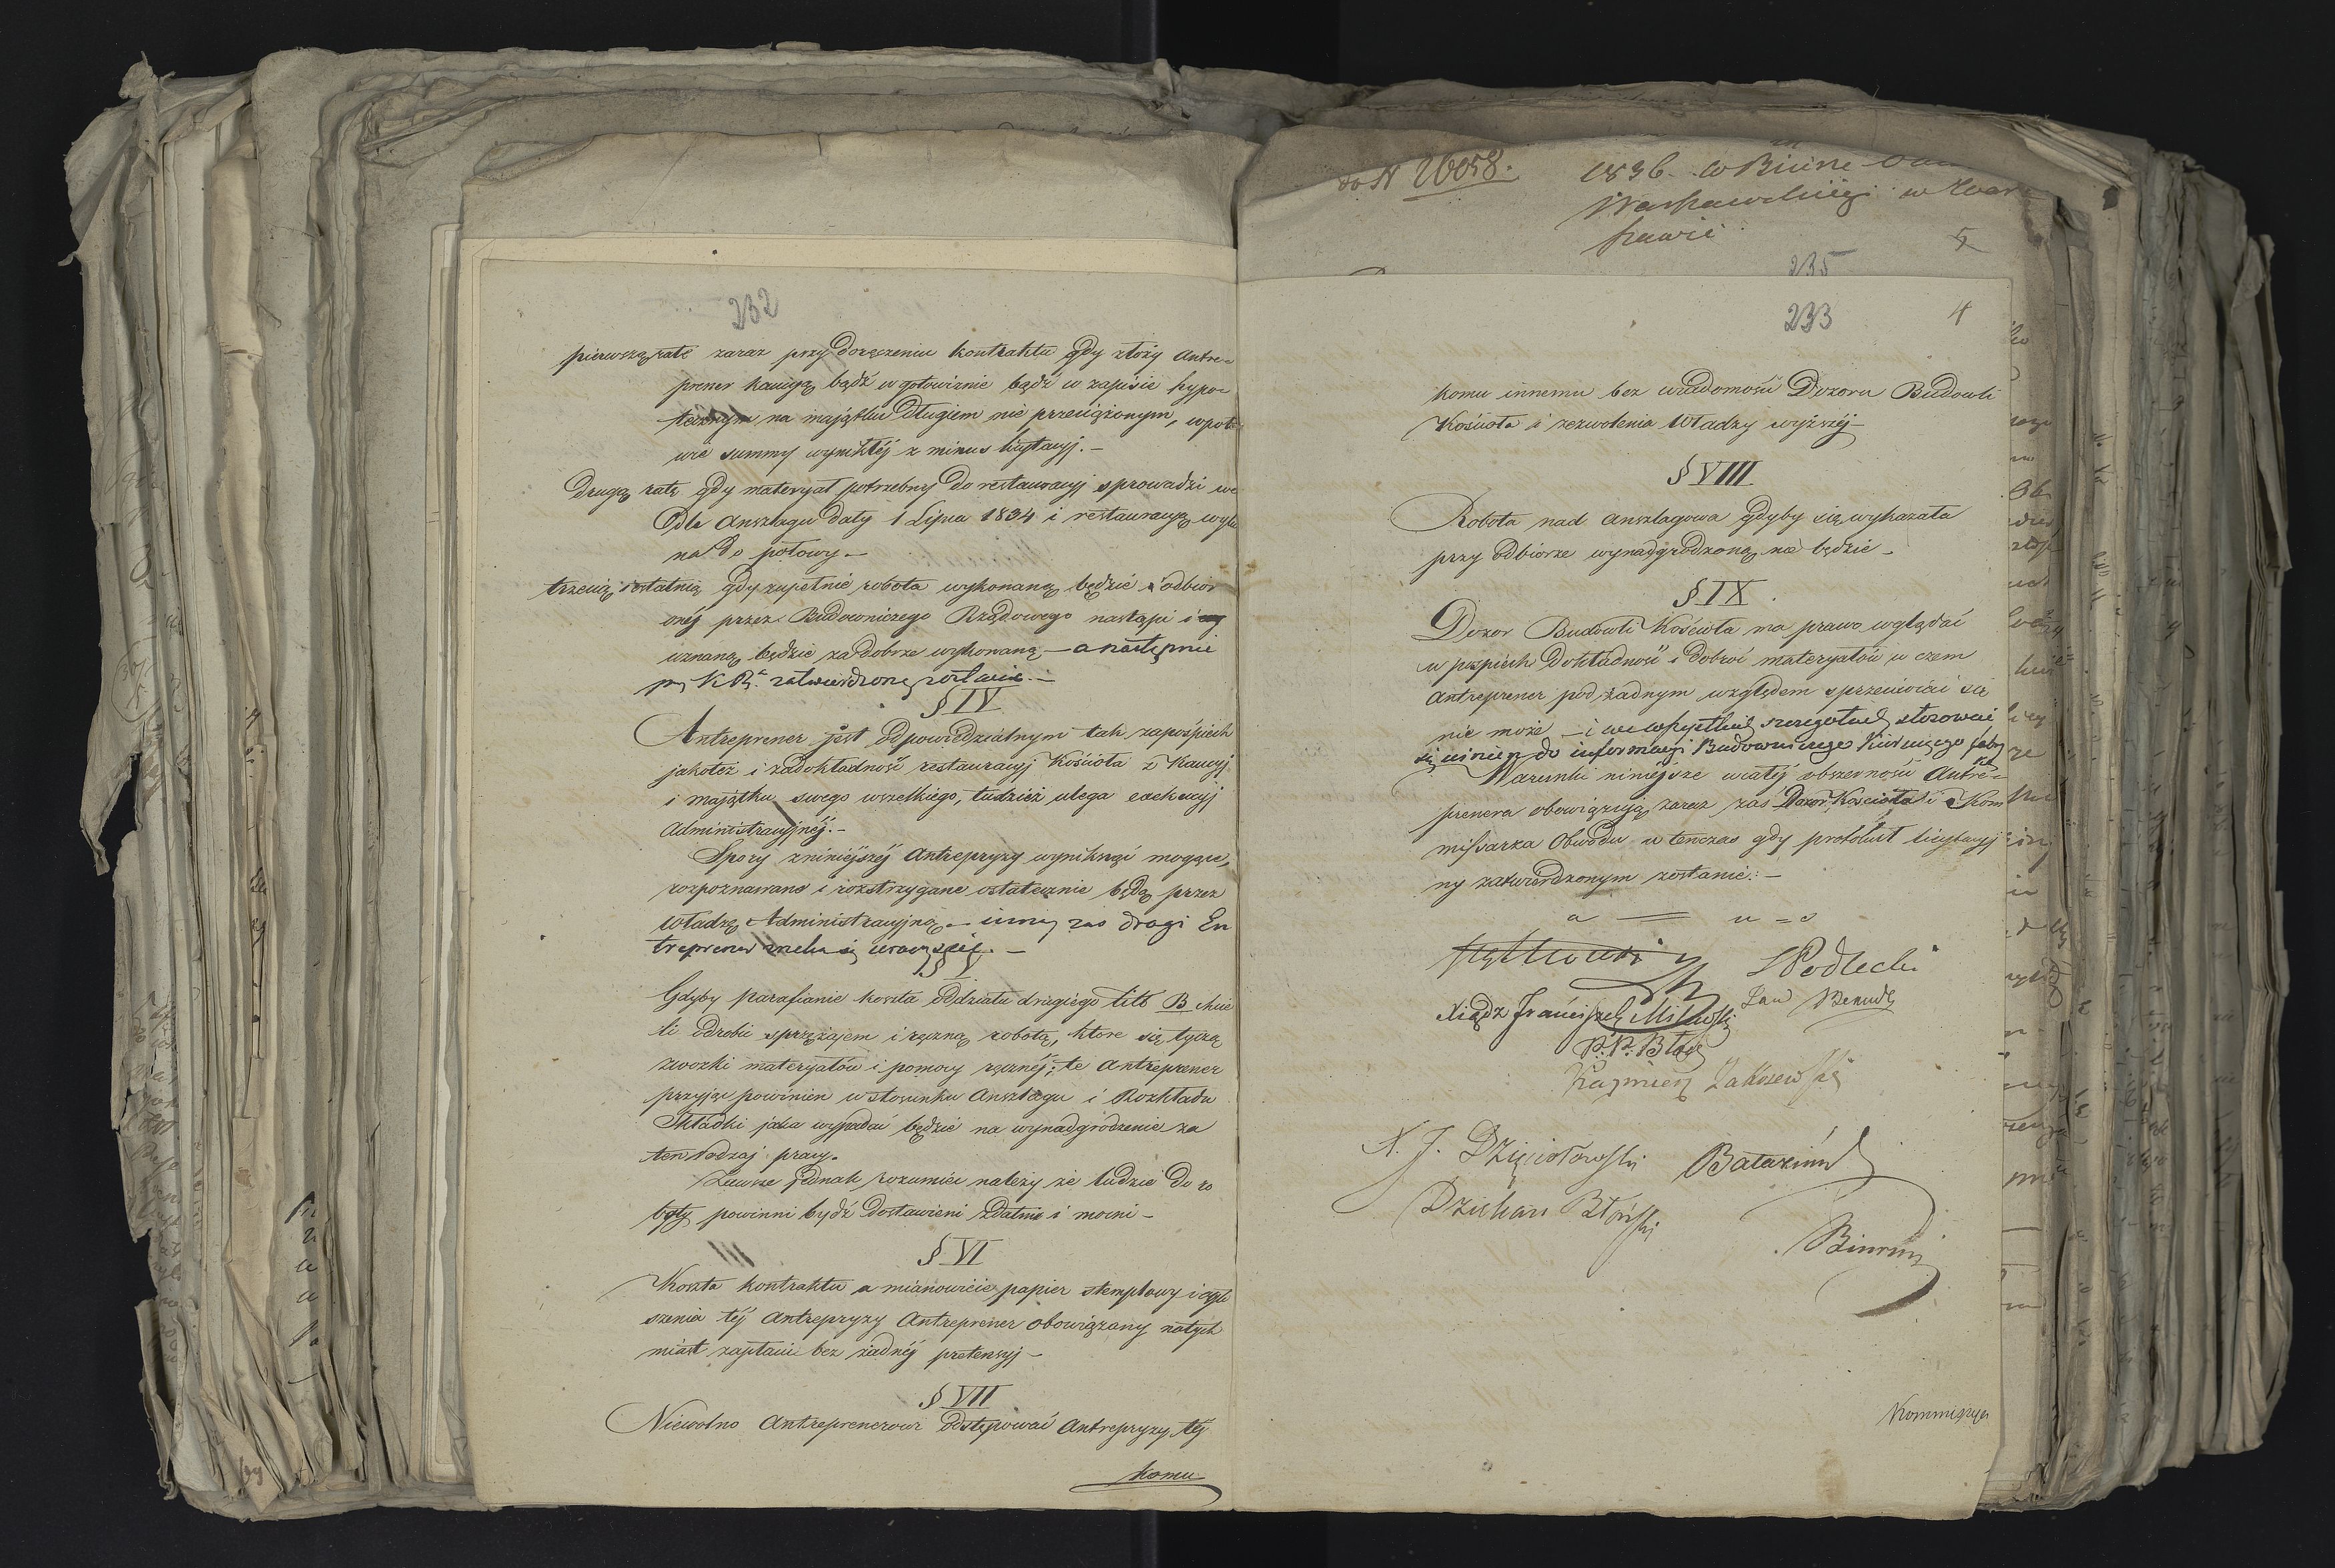 232
pierwszą ratę zaraz przy doręczeniu kontraktu gdy złoży Antre-
prener kaucyą bądź w gotowiznie bądź w zapisie hypo-
tecznym na majątku długiem nie przeciążonym, w poło
wie summy wynikłéj z minus licytacyj. -
drugą ratę gdy materyał potrzebny do restauracyj sprowadzi we
dle Anszlagu daty 1 Lipca 1834 i restauracyą wyko
na do połowy -
trzecią i ostatnią gdy zupełnie robota wykonaną będzie i odbior
onéj przez Budowniczego Rządowego nastąpi i
uznaną będzie za dobrze wykonaną - a następnie
zatwierdzoną zostanie. -
§ IV
Antreprener jest odpowiedzialnym tak za pośpiech
jakoteż i za dokładność restauracyj Kościoła z Kaucyj
i majątku swego wszelkiego, tudzież ulega exekucyj
Administracyjnéj. -
Spory z niniejszéj Antrepryzy wyniknąć mogące,
rozpoznawane i rozstrzygane ostatecznie będą przez
Władzę Administracyjną - inney zas drogi En
treprener zrzeka się
§ V
Gdyby parafianie koszta oddziału drugiego litt B chcie
li odrobić sprzężajem i ręczną robotą, które się tyczą
zwózki materyałów i pomocy ręcznéj; te Antreprener
przyjąc powinien w stosunku Anszlagu i Rozkładu
Składki jaka wypadać będzie na wynadgrodzenie za
ten rodzaj pracy.
jednak rozumieć należy że ludzie do ro
boty powinni bydź dostawieni zdatni i mocni -
§ VI
Koszta kontraktu a mianowicie papier stemplowy i ogło
szenia téj Antrepryzy Antreprener obowiązany natych
miast zapłacić bez żadnéj pretensyj -
§ VII
Niewolno Antreprenerowi odstępować Antrepryzy téj
komu
do N 26058.
1836. w Biurze
Warszawskiego w War
szawie
5
235
233
4
komu innemu bez wiadomości Dozoru Budowli
Kościoła i zezwolenia Władzy wyższéj -
§ VIII
Robota nad Anszlagowa gdyby się wykazała
przy odbiorze wynadgrodzoną nie będzie -
§ IX
Dozor Budowli Kościoła ma prawo wglądać
w pospiech dokładność i dobroć materyałów w czem
Antreprener pod żadnym względem sprzeciwiać się
nie może - i we wszystkich szczegółach stosować
się winien do informacyi Budowniczego Kierującego
Warunki niniejsze w całéj obszerności Antre-
prenera obowiązują zaraz zas Dozor Kościoła i Kom
missarza Obwodu w tenczas gdy protokuł licytacyj
ny zatwierdzonym zostanie: -
Podlecki
Xiądz Franciszek Milewski
P. P. Błoń
Kazmierz Zakrzewski
X. J. Dzięciołowski
Dziekan Błoński
Kommissya